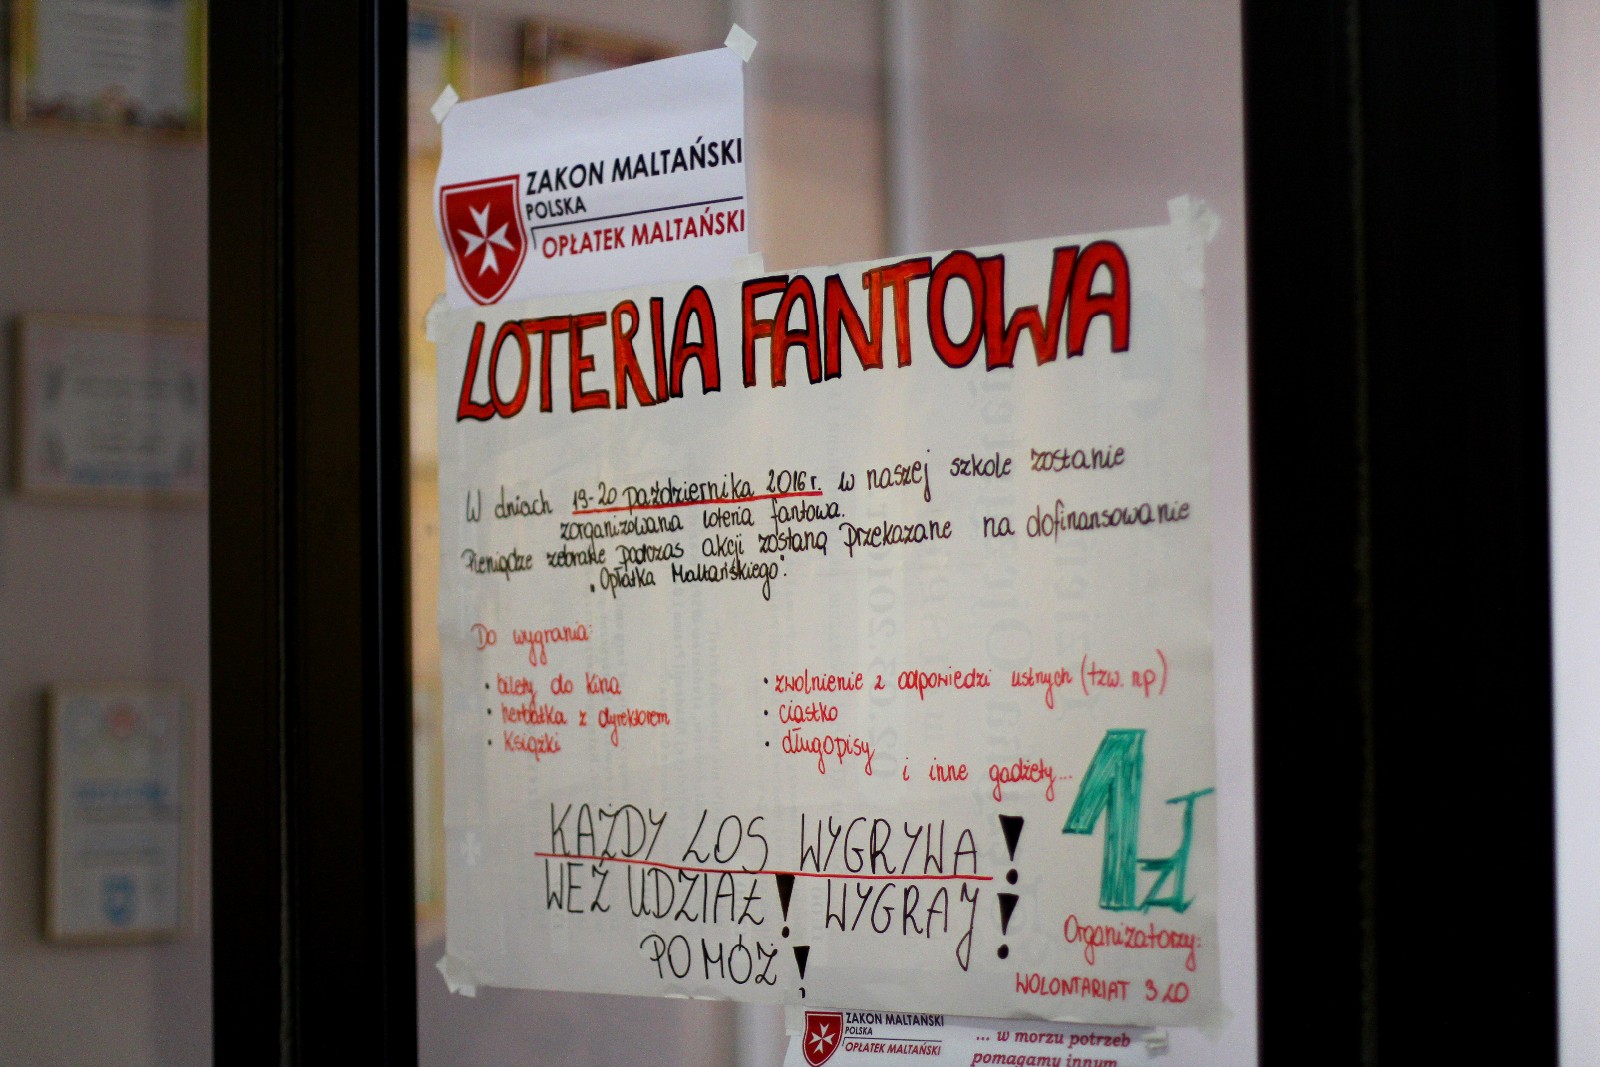 ZAKON MALTAŃSKI
POLSKA
OPŁATEK MALTAŃSKI
LOTERIA FANTOWA
W dniach 19-20 października 2016 r. w naszej szkole zostanie
zorganizowana loteria fantowa.
Pieniądze zebrane podczas akcji zostaną przekazane na dofinansowanie
"Opłatka Maltańskiego".
Do wygrania:
• bilety do kina
• herbatka z dyrektorem
• książki
• zwolnienie z odpowiedzi ustnych (tzw. np)
• ciastko
• długopisy
i inne gadżety...
KAŻDY LOS WYGRYWA!
WEŹ UDZIAŁ! WYGRAJ!
POMÓŻ!
1 zł
Organizatorzy:
WOLONTARIAT 3 LO
ZAKON MALTAŃSKI
POLSKA
OPŁATEK MALTAŃSKI
... w morzu potrzeb
pomagamy innym